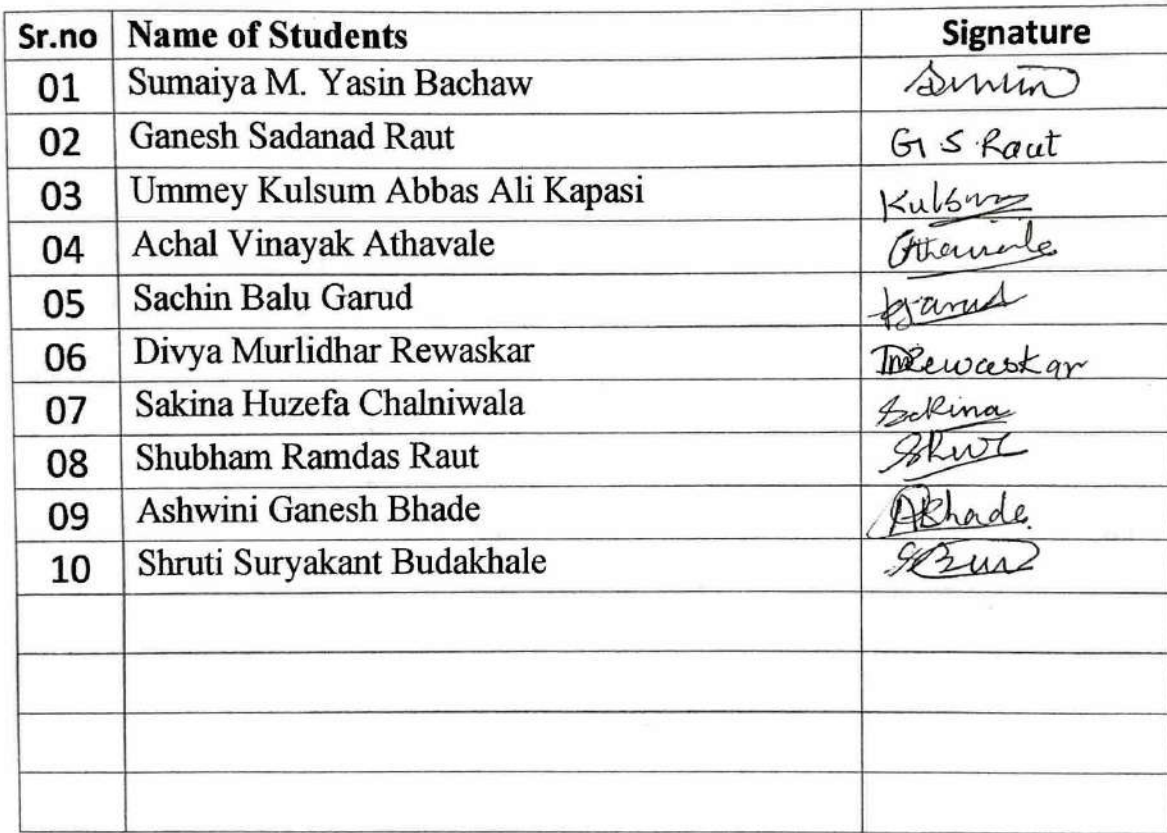 Sr.no Name of Students Signature
01 Sumaiya M. Yasin Bachaw
02 Ganesh Sadanad Raut G S Raut
03 Ummey Kulsum Abbas Ali Kapasi Kulsum
04 Achal Vinayak Athavale
05 Sachin Balu Garud Garud
06 Divya Murlidhar Rewaskar DMRewaskar
07 Sakina Huzefa Chalniwala Sakina
08 Shubham Ramdas Raut
09 Ashwini Ganesh Bhade ABhade
10 Shruti Suryakant Budakhale